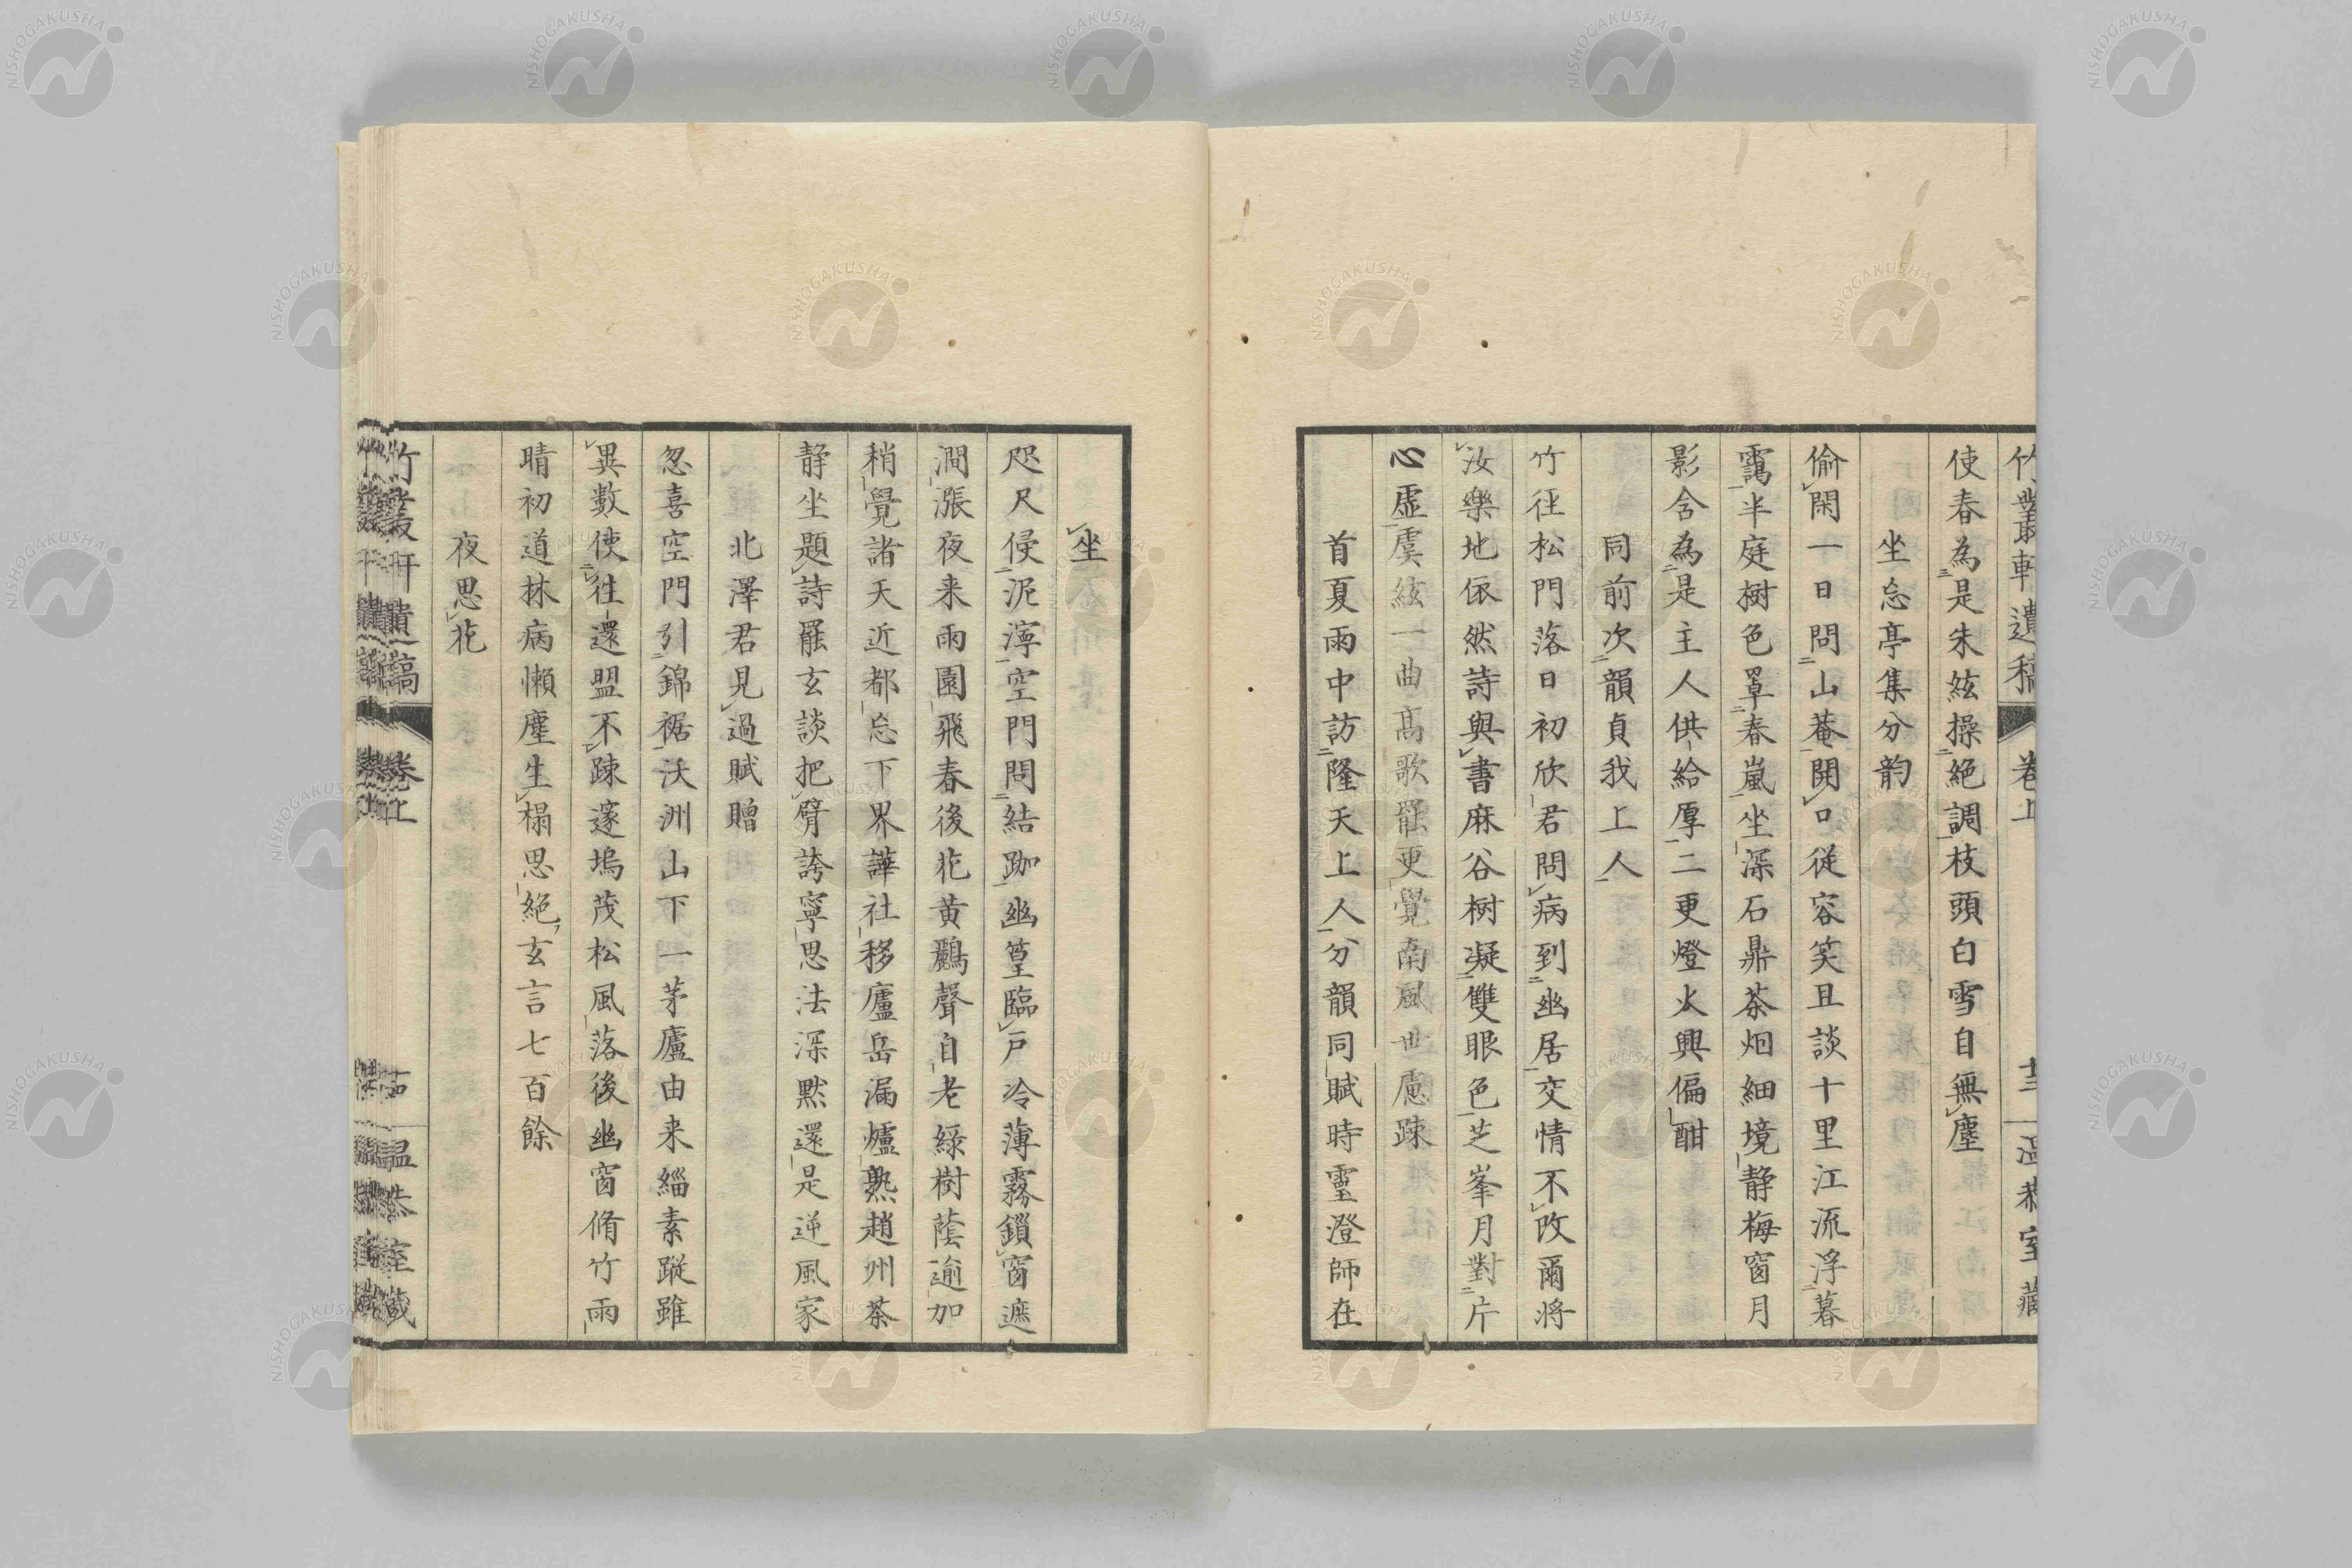 竹叢軒遺稿 卷上 十三 温恭室藏
使春為是朱絃操絕調枝頭白雪自無塵
坐忘亭集分韵
偷閑一日問山菴開口從容笑且談十里江流浮暮
靄半庭樹色罩春嵐坐深石鼎茶烟細境静梅窗月
影含為是主人供給厚二更燈火興偏酣
同前次韻貞我上人
竹徃松門落日初欣君問病到幽居交情不改爾將
汝樂地依然詩與書麻谷樹凝雙眼色芝峯月對片
心虛虞絃一曲髙歌罷更覺南風世慮踈
首夏雨中訪隆天上人分韻同賦時霊澄師在
坐
咫尺侵泥濘空門問結跏幽篁臨戸冷薄霧鎖窗遮
澗漲夜来雨園飛春後花黄鸝聲自老緑樹蔭逾加
稍覺諸天近都忘下界譁社移廬岳漏爐熟趙州茶
静坐題詩罷玄談把臂誇寧思法深黙還是逆風家
北澤君見過賦贈
忽喜空門引錦裾沃洲山下一茅廬由来緇素蹤雖
異數使徃還盟不踈邃塢茂松風落後幽窗脩竹雨
晴初道林病懶塵生榻思絕玄言七百餘
夜思花
卷上
NISHOGAKUSHA